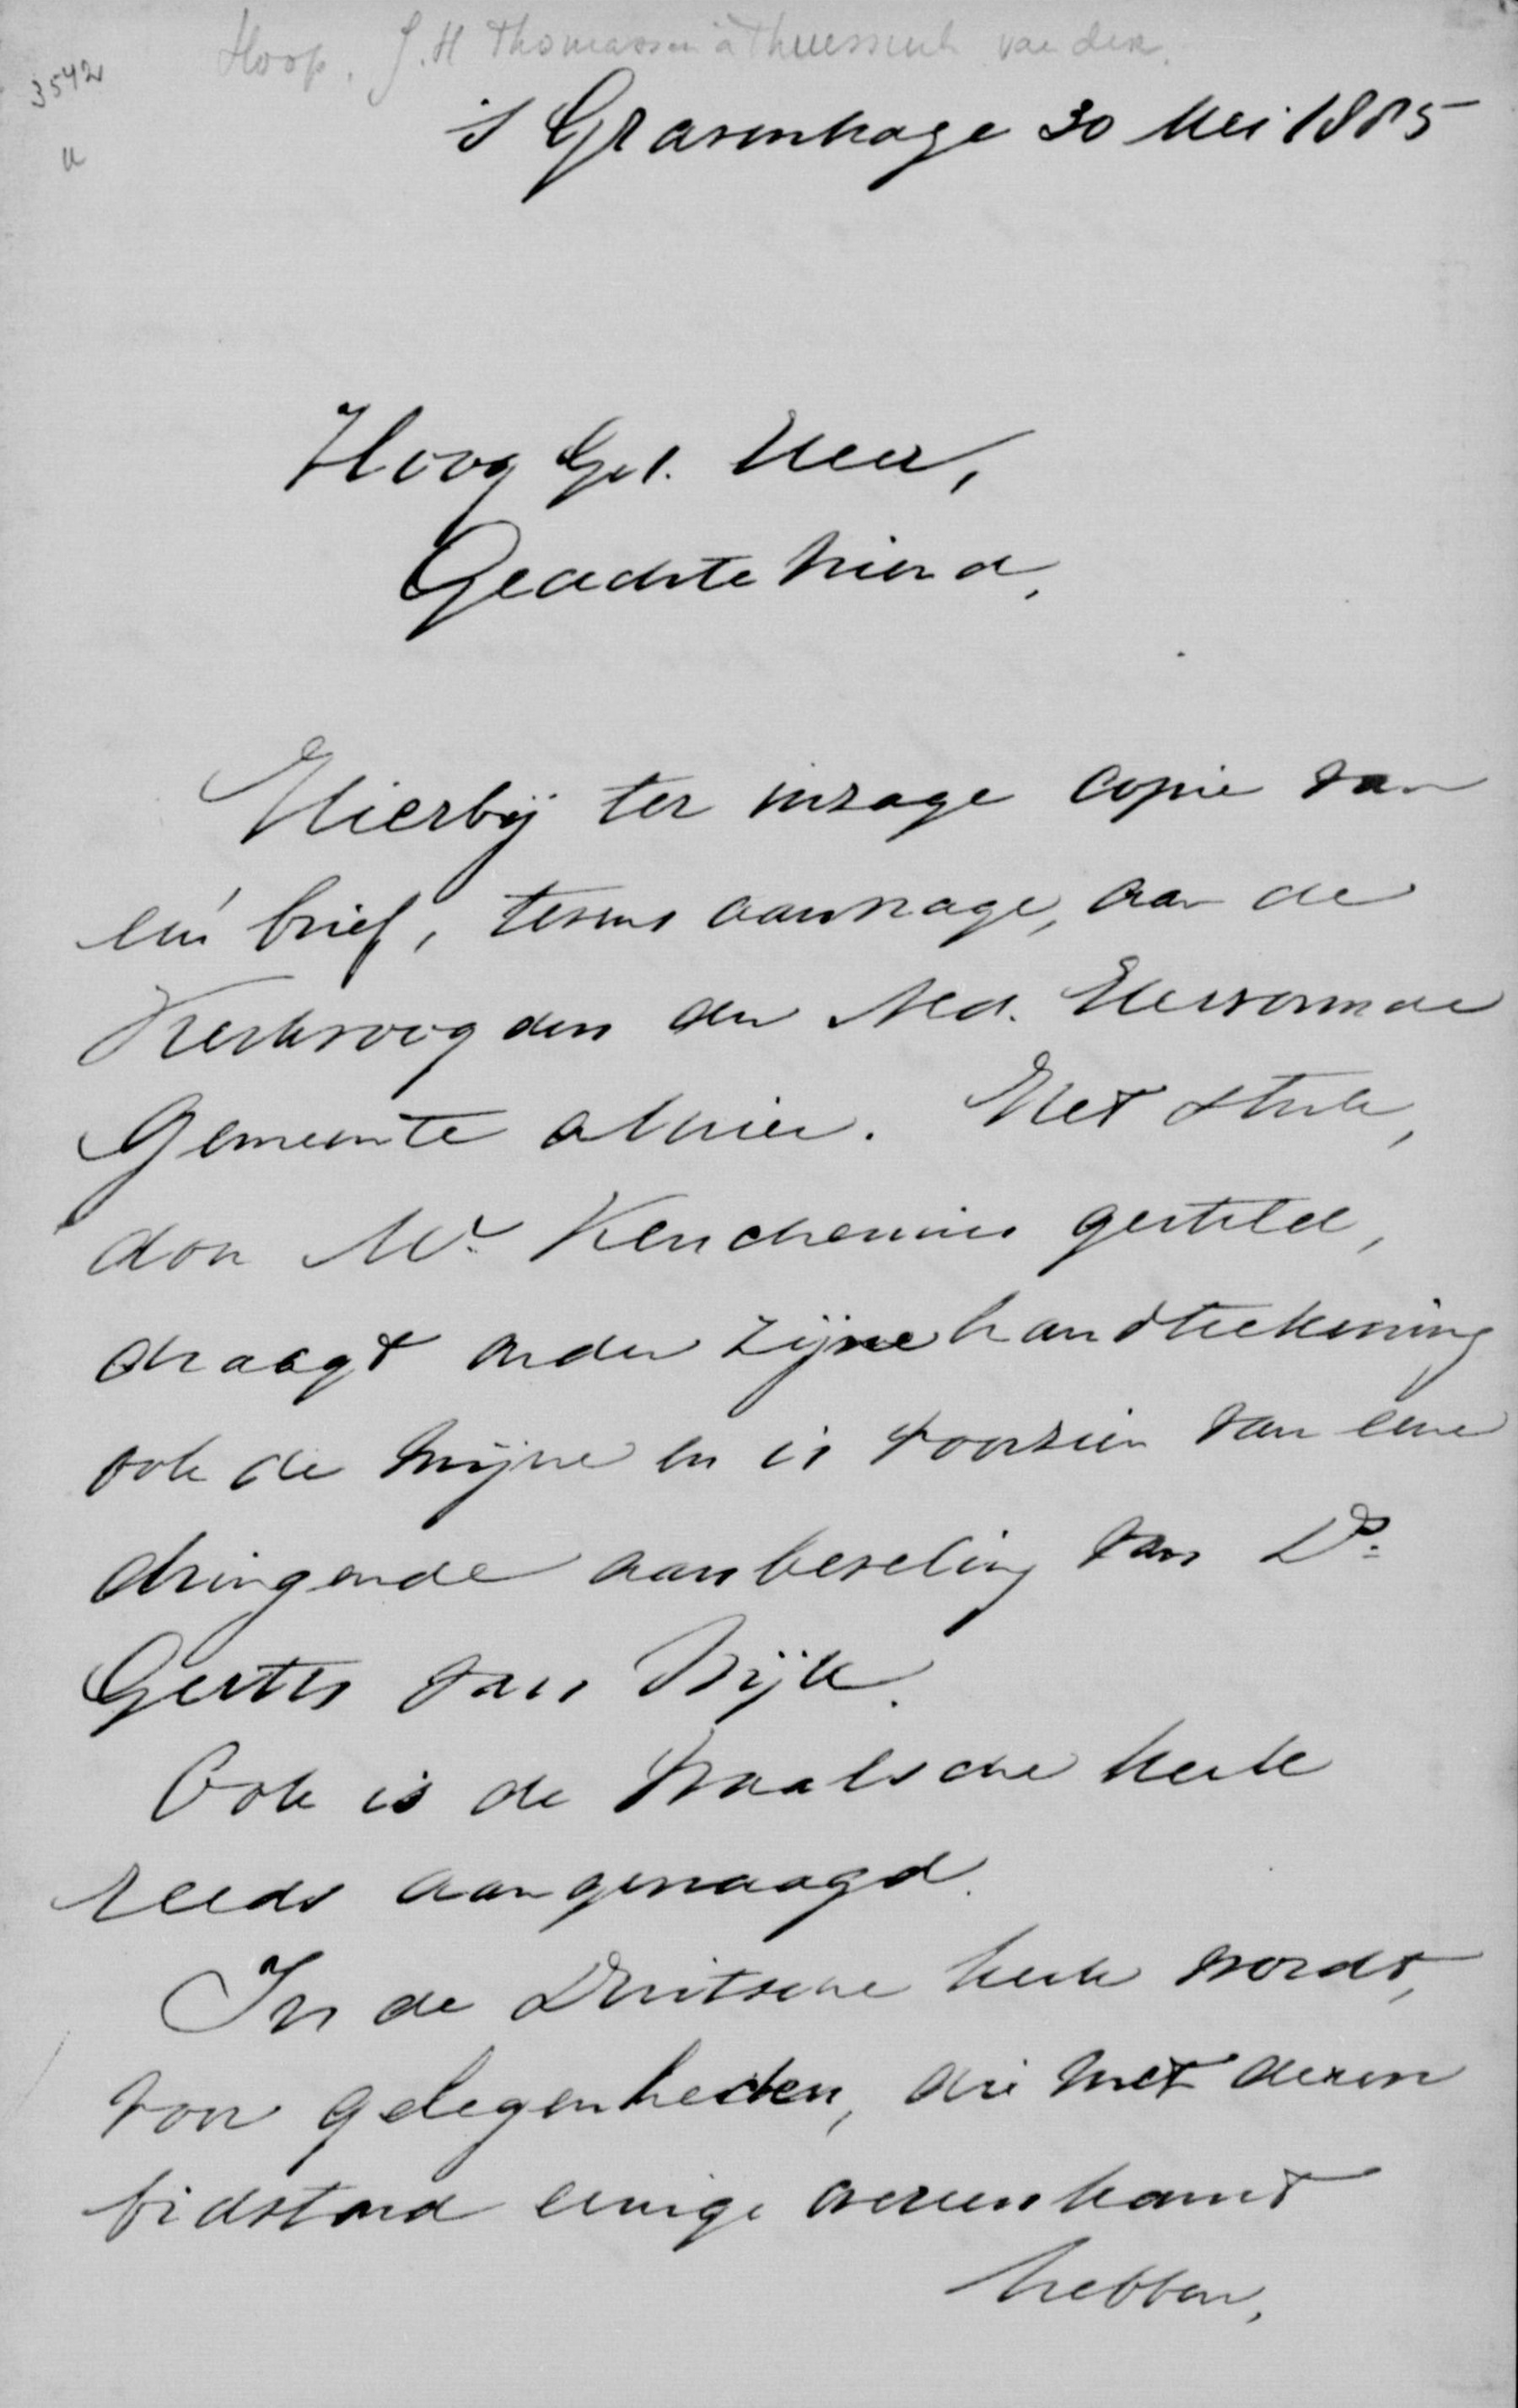 Hoop, J. H Thomassen à Thuessink van der.
3542
a
's Gravenhage 30 Mei 1885
Hoog Gel. Heer,
Geachte Vriend,
Hierbij ter inzage copie van
een brief, tevens aanvrage, aan de
Kerkvoogden der Ned. Hervormde
Gemeente alhier. Het stuk,
door Mr. Keuchenius gesteld,
draagt onder zijne handteekening
ook de mijne en is voorzien van eene
dringende aanbeveling van Ds.
Gerth van Wijk.
Ook is de Waalsche kerk
reeds aangevraagd.
In de Duitsche kerk wordt,
voor gelegenheden, die met dezen
bidstond eenige overeenkomst
hebben,